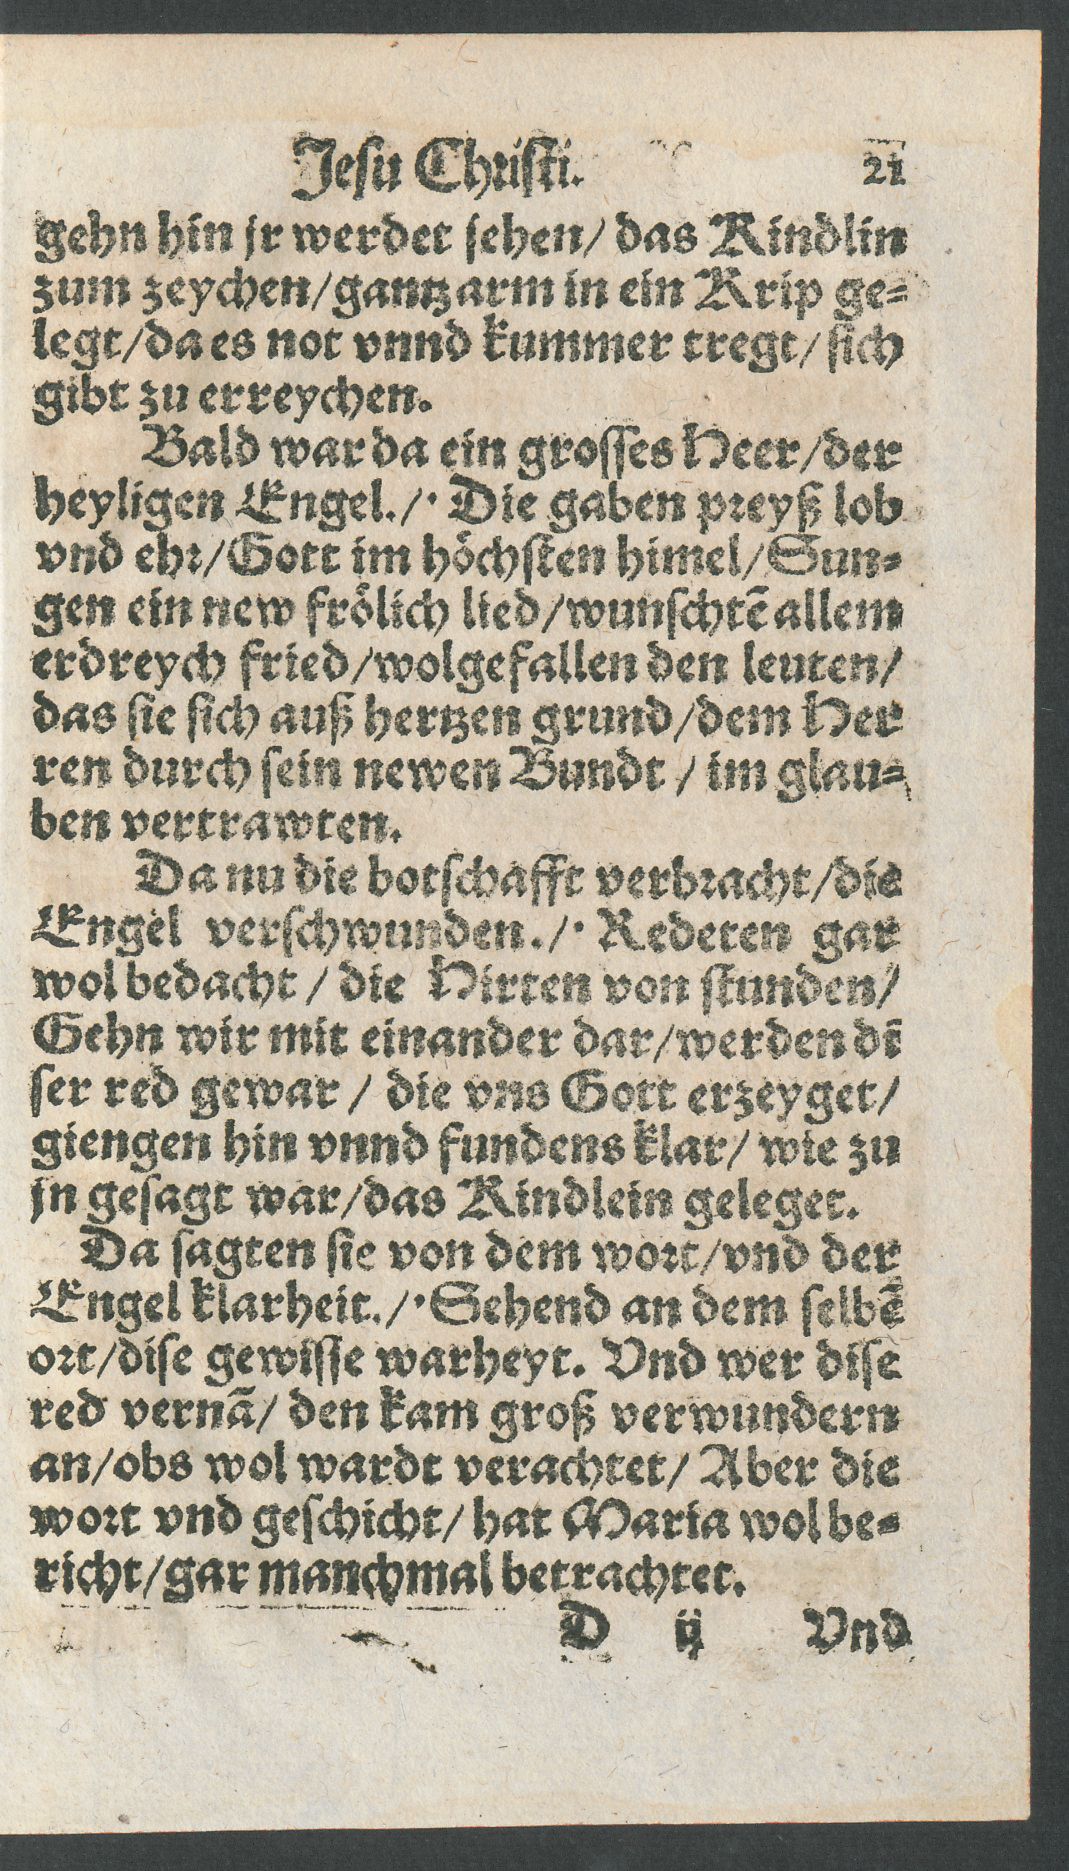 Jesu Christi. 21
gehn hin jr werdet sehen/ das Kindlin
zum zeychen/gantz arm in ein Krip ge-
legt/da es not vnnd kummer tregt/ sich
gibt zu erreychen.
Bald war da ein grosses Heer/der
heyligen Engel./· Die gaben preyß lob
vnd ehr/Gott im höchsten himel/Sun-
gen ein new frölich lied/wunschtē allem
erdreych fried/wolgefallen den leuten/
das sie sich auß hertzen grund/dem Her
ren durch sein newen Bundt / im glau-
ben vertrawten.
Da nu die botschafft verbracht/die
Engel verschwunden./· Redeten gar
wol bedacht / die Hirten von stunden/
Gehn wir mit einander dar/werden di
ser red gewar / die vns Gott erzeyget/
giengen hin vnnd fundens klar/ wie zu
jn gesagt war/das Kindlein geleget.
Da sagten sie von dem wort/vnd der
Engel klarheit./· Sehend an dem selbē
ort/dise gewisse warheyt. Vnd wer dise
red vernā/ den kam groß verwundern
an/obs wol wardt verachtet/ Aber die
wort vnd geschicht/ hat Maria wol be-
richt/gar manchmal betrachtet.
D ij Vnd